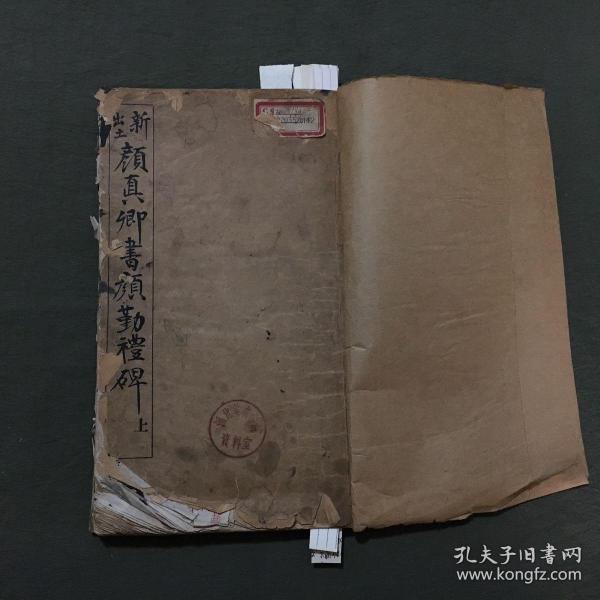 新出土
顏真卿書顏勤禮碑
上
資料室
孔夫子旧书网
www.kongfz.com